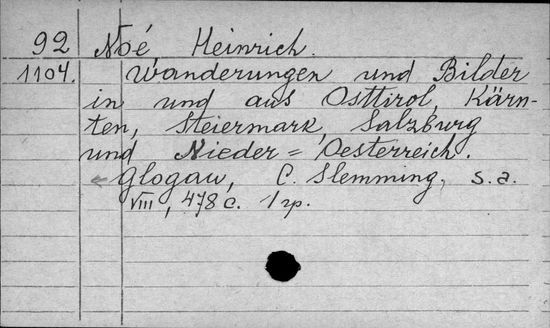 92 Noé Heinrich.
1104. Wanderungen und Bilder
in und aus Osttirol, Kärn-
ten, Steiermark, Salzburg
und Nieder=Oesterreich.
Glogau, C. Slemming, s.a.
VIII, 478 c. 1 гр.